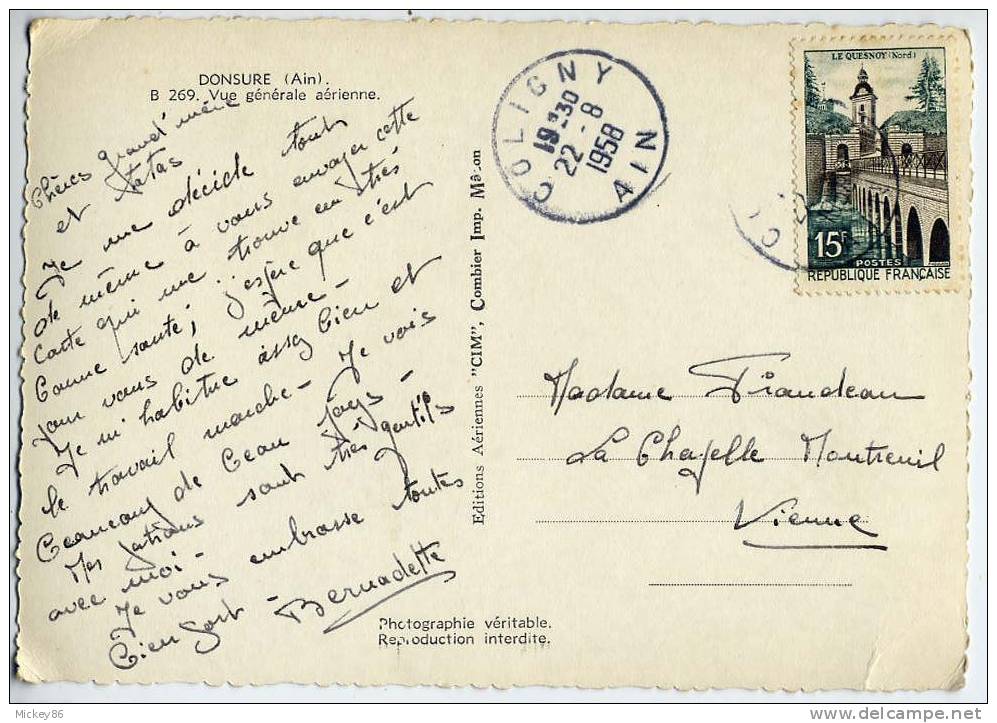 DONSURE (Ain).
B 269. Vue générale aérienne.
Chères grand'mère
et tatas
Je me décide tout
de même à vous envoyer cette
carte qui me trouve en très
bonne santé; j'espère que c'est
pour vous de même -
Je m'habitue assez bien et
le travail marche - Je vois
beaucoup de beau pays -
Mes patrons sont très gentils
avec moi -
Je vous embrasse toutes
bien fort -
Bernadette
Photographie véritable.
Reproduction interdite.
Editions Aériennes "CIM", Combier Imp. Mâcon
COLIGNY
19-30
22-8
1958
AIN
LE QUESNOY (Nord)
15F
POSTES
REPUBLIQUE FRANÇAISE
Madame
La Chapelle Montreuil
Vienne
Mickey86
http://www.delcampe.net